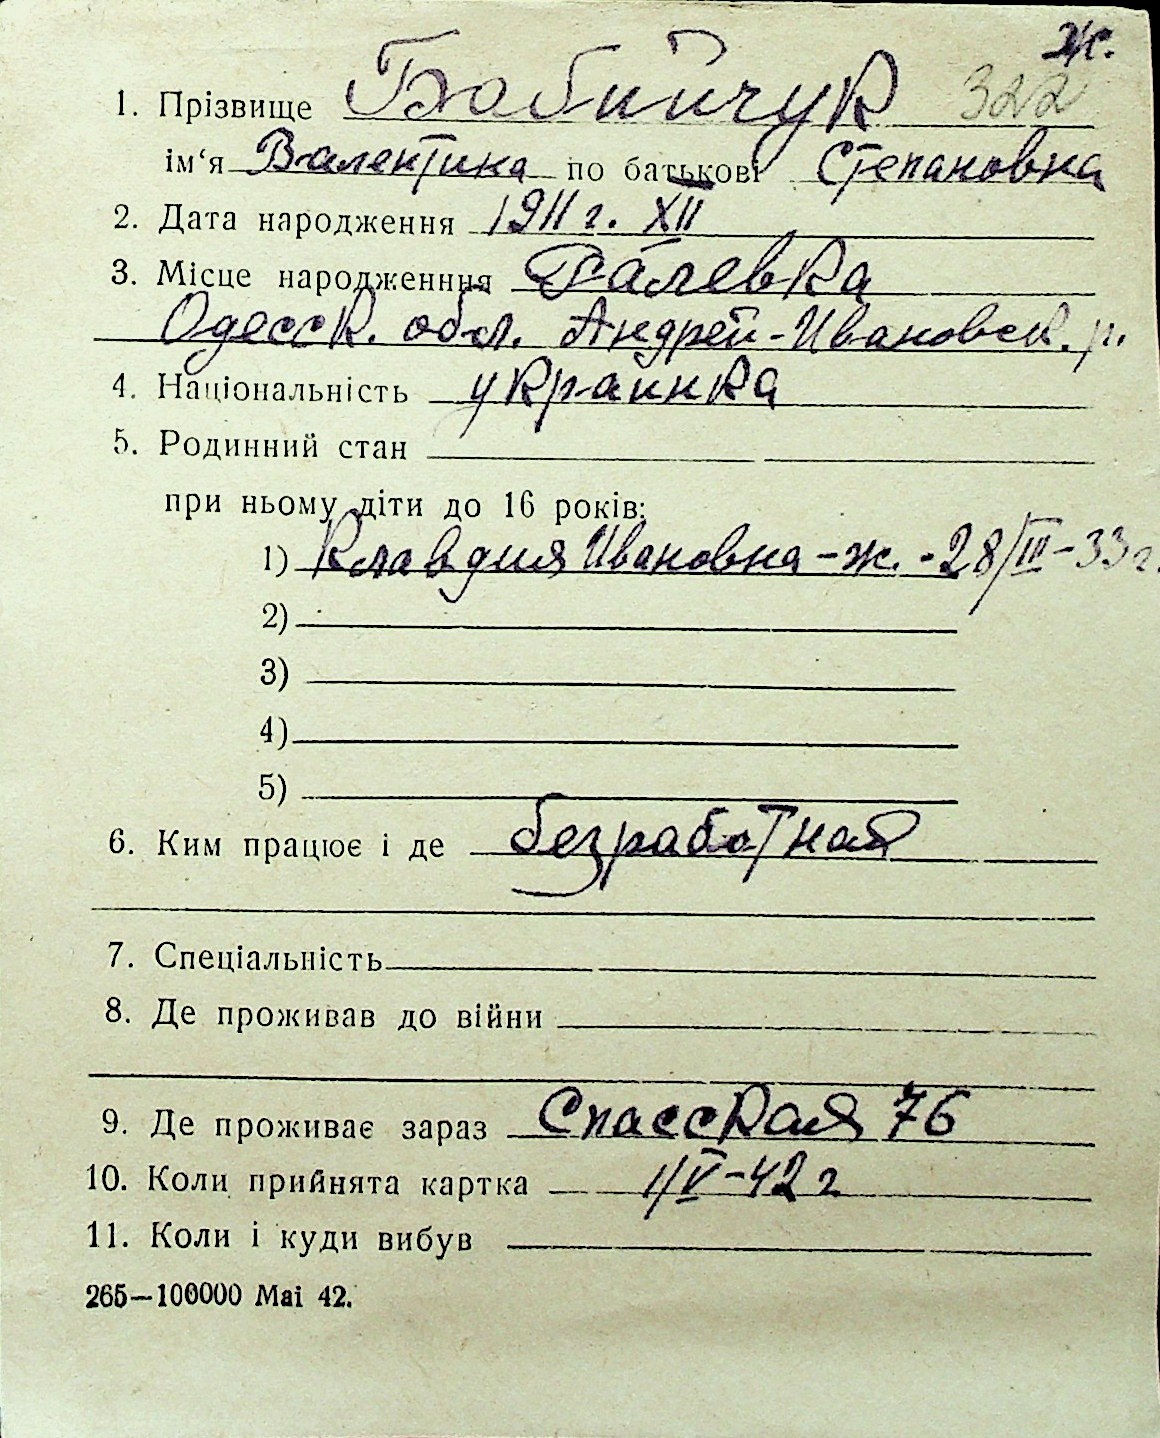 ж.
1. Прізвище Бабийчук 322
ім‘я Валентина по батькові Степановна
2. Дата народження 1911 г. XII
3. Місце народженння Ралевка
Одесск. обл. Андрей-Ивановск. р.
4. Національність украинка
5. Родинний стан
при ньому діти до 16 років:
1) Клавдия Ивановна – ж. - 28/III – 33 г.
2)
3)
4)
5)
6. Ким працює і де безработная
7. Спеціальність
8. Де проживав до війни
9. Де проживає зараз Спасская 76
10. Коли прийнята картка 1/V – 42 г
11. Коли і куди вибув
265—100000 Mai 42.